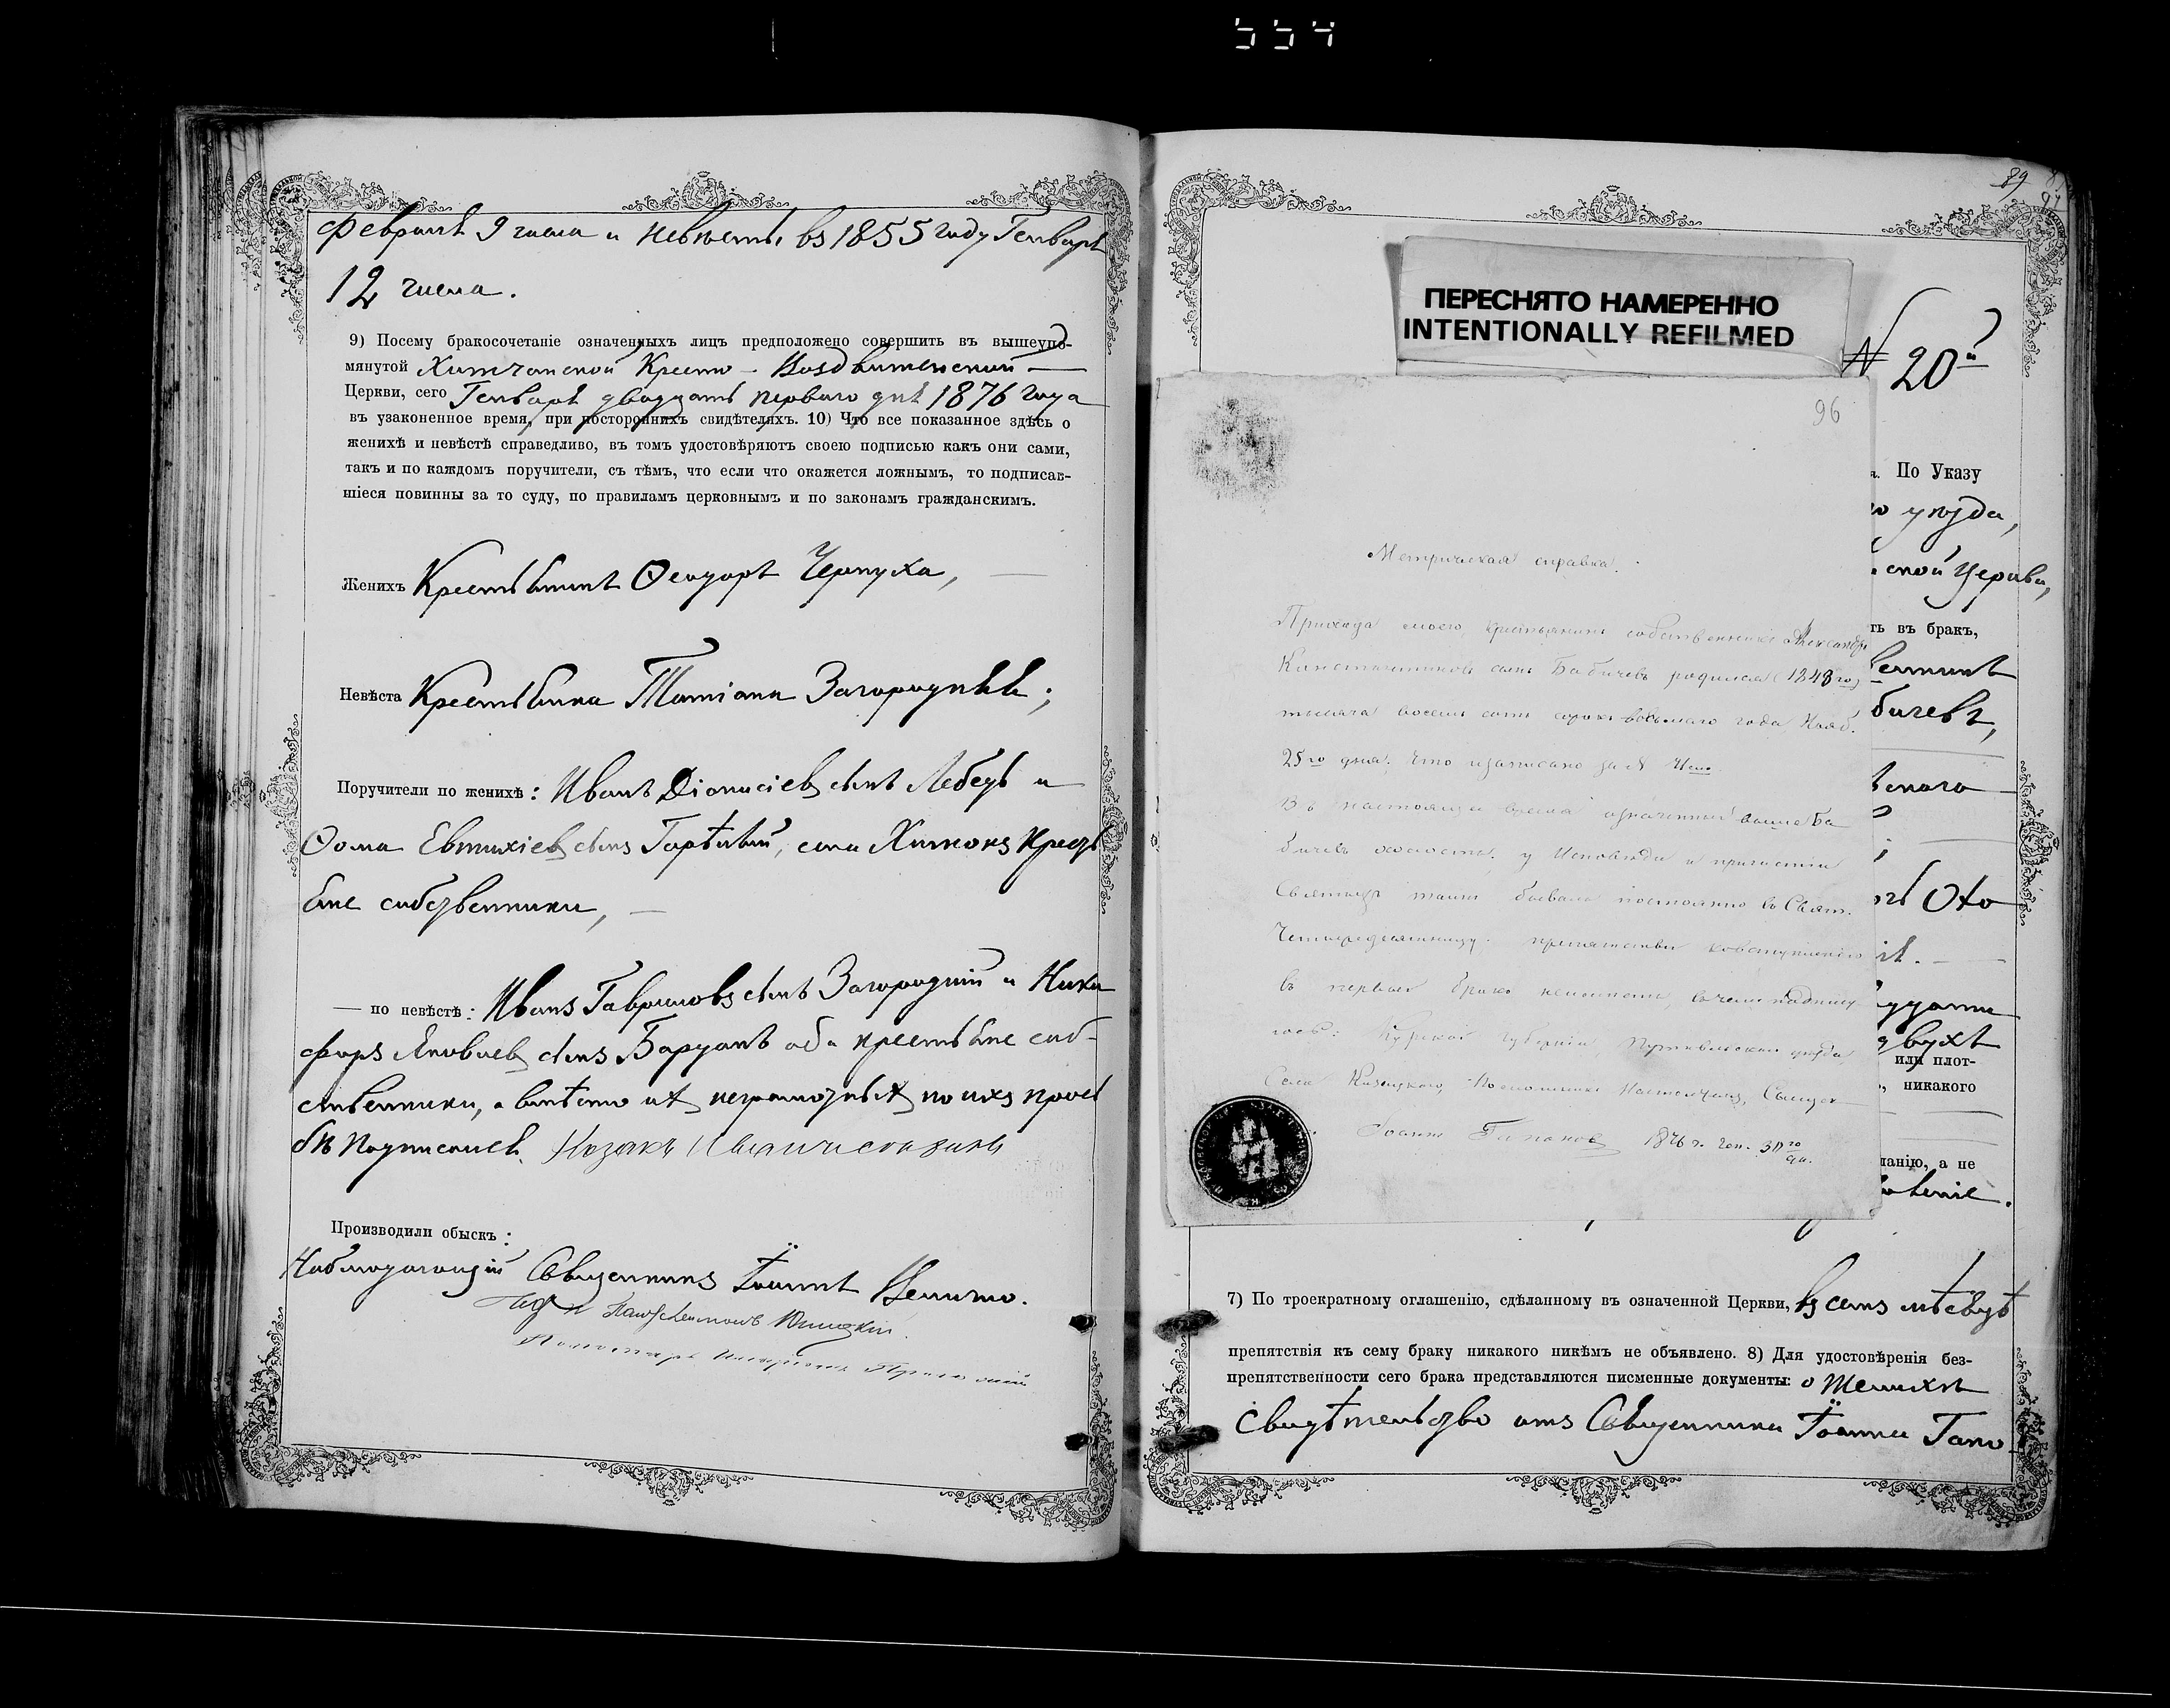 554
Февраля 9 числа и невѣсты въ 1855 году Генваря
12 числа.
9) Посему бракосочетаніе означенныхъ лицъ предположено совершить въ вышеупо-
мянутой Хижчанской Кресто-Воздвиженской
Церкви, сего Генваря двадцать перваго дня 1876 года
въ узаконенное время, при постороннихъ свидѣтеляхъ. 10) Что все показанное здѣсь о
женихѣ и невѣстѣ справедливо, въ томъ удостовѣряютъ своею подписью какъ они сами,
такъ и по каждомъ поручители, съ тѣмъ, что если что окажется ложнымъ, то подписав-
шіеся повинны за то суду, по правиламъ церковнымъ и по законамъ гражданскимъ.
Женихъ Крестьянинъ Ѳеодоръ Черпуха,
Невѣста Крестьянка Татіана Загородняя;
Поручители по женихѣ: Иванъ Діонисіевъ сынъ Лебедь и
Ѳома Евтихіевъ сынъ села Хижокъ крестья
яне собственники,
— по невѣстѣ: Иванъ Гавриловъ сынъ Загородній и Ники
форъ Яковлевъ сынъ оба крестьяне соб-
ственники, а вмѣсто ихъ неграмотныхъ по ихъ прось
бѣ подписался Козакъ
Производили обыскъ:
Наблюдающій Священникъ Іоаннъ
Пономарь
89
ПЕРЕСНЯТО НАМЕРЕННО
INTENTIONALLY REFILMED
№ 20й
96
я. По Указу
го уѣзда,
ской Церкви,
ть въ бракъ,
бичевъ,
двухъ
или плот-
никакого
ланію, а не
Метрическая справка.
Прихода моего, крестьянинъ собственникъ Александръ
Константиновъ сынъ Бабичевъ родился (1848го)
тысяча восемь сотъ сорокъ восьмаго года Нояб.
25го дня. Что и записано за №
Въ настоящее время означенный выше Ба
бичевъ холостъ, у Исповѣди и причастія
Святыхъ таинъ бывалъ постоянно въ Свят.
Четыредесятницу. препятствій ко вступленію
въ первый бракъ не имѣетъ, въ чемъ подпису
юсь: Курской губерніи, Путивльскаго уѣзда,
Села Казацкаго, Священ
Іоаннъ Гапоновъ 1876 г. Ген. 30го дн.
7) По троекратному оглашенію, сдѣланному въ означенной Церкви, въ семъ мѣсяцѣ
препятствія къ сему браку никакого никѣмъ не объявлено. 8) Для удостовѣренія без-
препятственности сего брака представляются писменные документы: о женихѣ
Свидѣтельство отъ Священника Іоанна Гапо